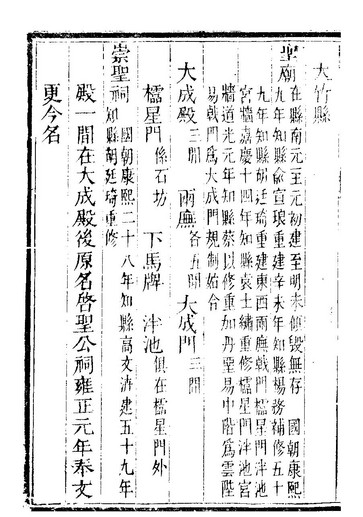 大竹縣
聖廟在縣南元至元初建至明末傾毀無存　國朝康熙
九年知縣俞宣琅重建辛未年知縣楊務補修五十
九年知縣胡廷琦重建東西兩廡戟門櫺星門泮池
宮牆嘉慶十四年知縣袁士繡重修櫺星門泮池宮
牆道光元年知縣蔡以修重加丹堊易中階爲雲陛
易戟門爲大成門規制始合
大成殿三間　兩廡各五間　大成門三間
櫺星門係石坊　下馬牌　泮池俱在櫺星門外
崇聖祠　國朝康熙二十八年知縣高文濬建五十九年
知縣胡廷琦重修
殿一間在大成殿後原名啓聖公祠雍正元年奉文
更今名